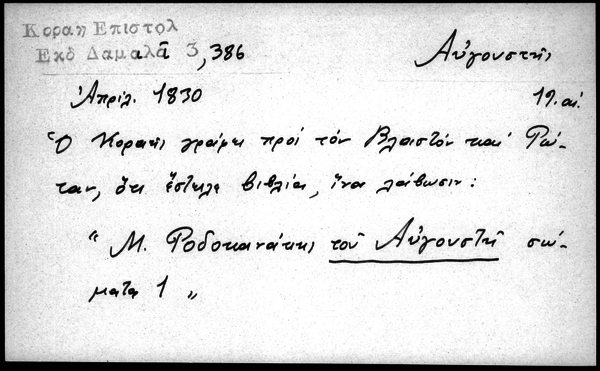 Κοραη Επιστολ
Εκδ Δαμαλᾶ 3,386
Αὐγουστῆς
Ἀπρίλ. 1830
19. αἰ.
Ὁ Κοραῆς γράφει πρὸς τὸν Βλαστὸν καὶ Ρώ-
ταν, ὅτι ἔστειλε βιβλία, ἵνα λάβωσιν:
"Μ. Ροδοκανάκης τοῦ Αὐγουστῆ σώ-
ματα 1"